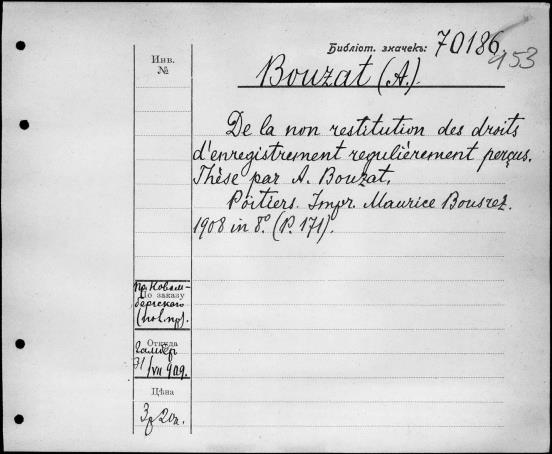 Библіот. значекъ: 70186
153
Инв.
№
Bouzat (A.)
De la non restitution des droits
d'enregistrement regulièrement perçus.
Thèse par A. Bouzat.
Poitiers. Impr. Maurice Bousrez.
1908 in 8.° (P. 171).
По заказу
Откуда
31/VII 909.
Цѣна
3р 20к.